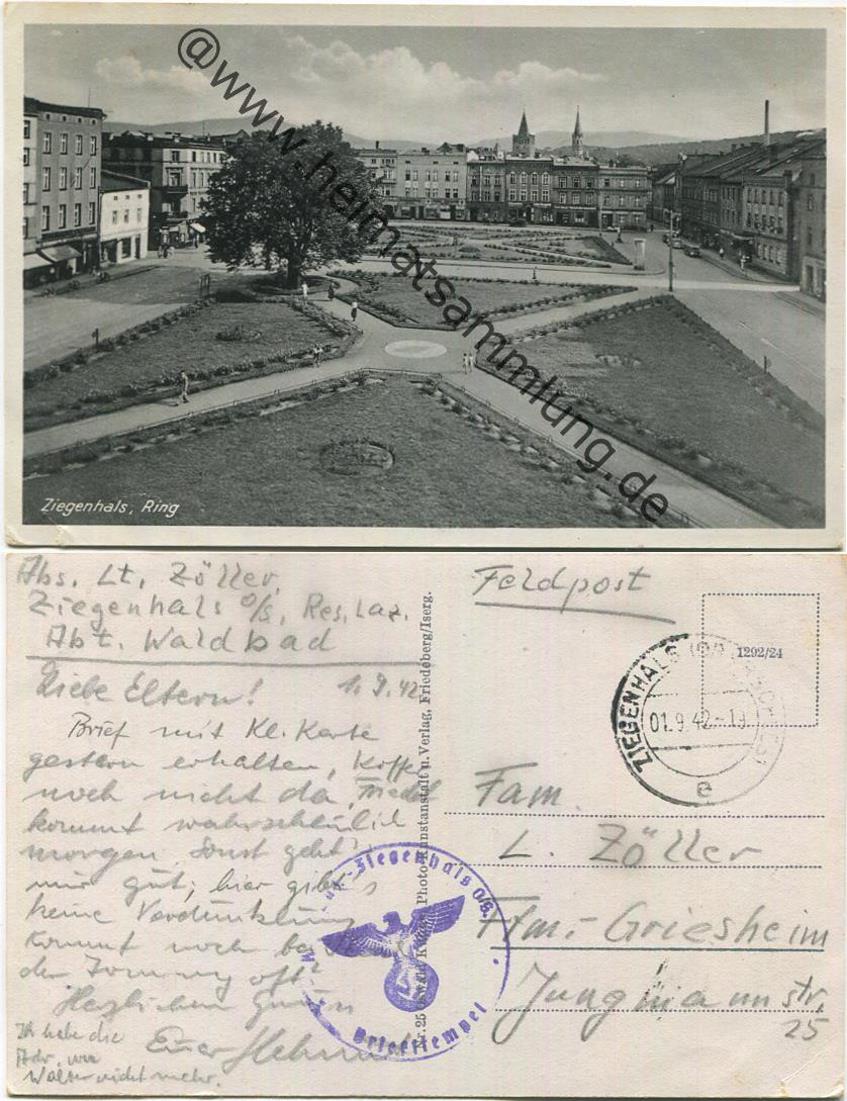 @www.heimatsammlung.de
Ziegenhals, Ring
Abs. Lt. Zöller,
Ziegenhals O/S, Res. Laz.
Abt. Waldbad
Liebe Eltern! 1.9.42
Brief mit Kl. Karte
gestern erhalten, Koffer
noch nicht da,
kommt wahrscheinlich
morgen. Sonst geht's
mir gut; hier gibt's
keine Verdunklung
kommt noch bei
der Tommy oft?
Herzlichen Gruss
Euer
Ich habe die
Adr. von
Walter nicht mehr.
Photo. Kunstanstalt u. Verlag, Friedeberg/Iserg.
Ziegenhals O/S.
Briefstempel
Feldpost
1292/24
ZIEGENHALS
01.9.42-19
e
Fam.
L. Zöller
Ffm.-Griesheim
Jungmannstr.
25